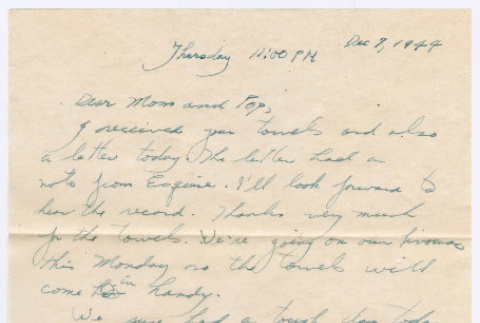 Thursday 11:00 PM Dec 7, 1944
Dear Mom and Pop,
I received your towels and also
a letter today. The letter had a
note from Esquire. I'll look forward to
hear the record. Thanks very much
for the towels. We're going on our bivouac
this Monday so the towels will
come in handy.
We sure had a tough day today